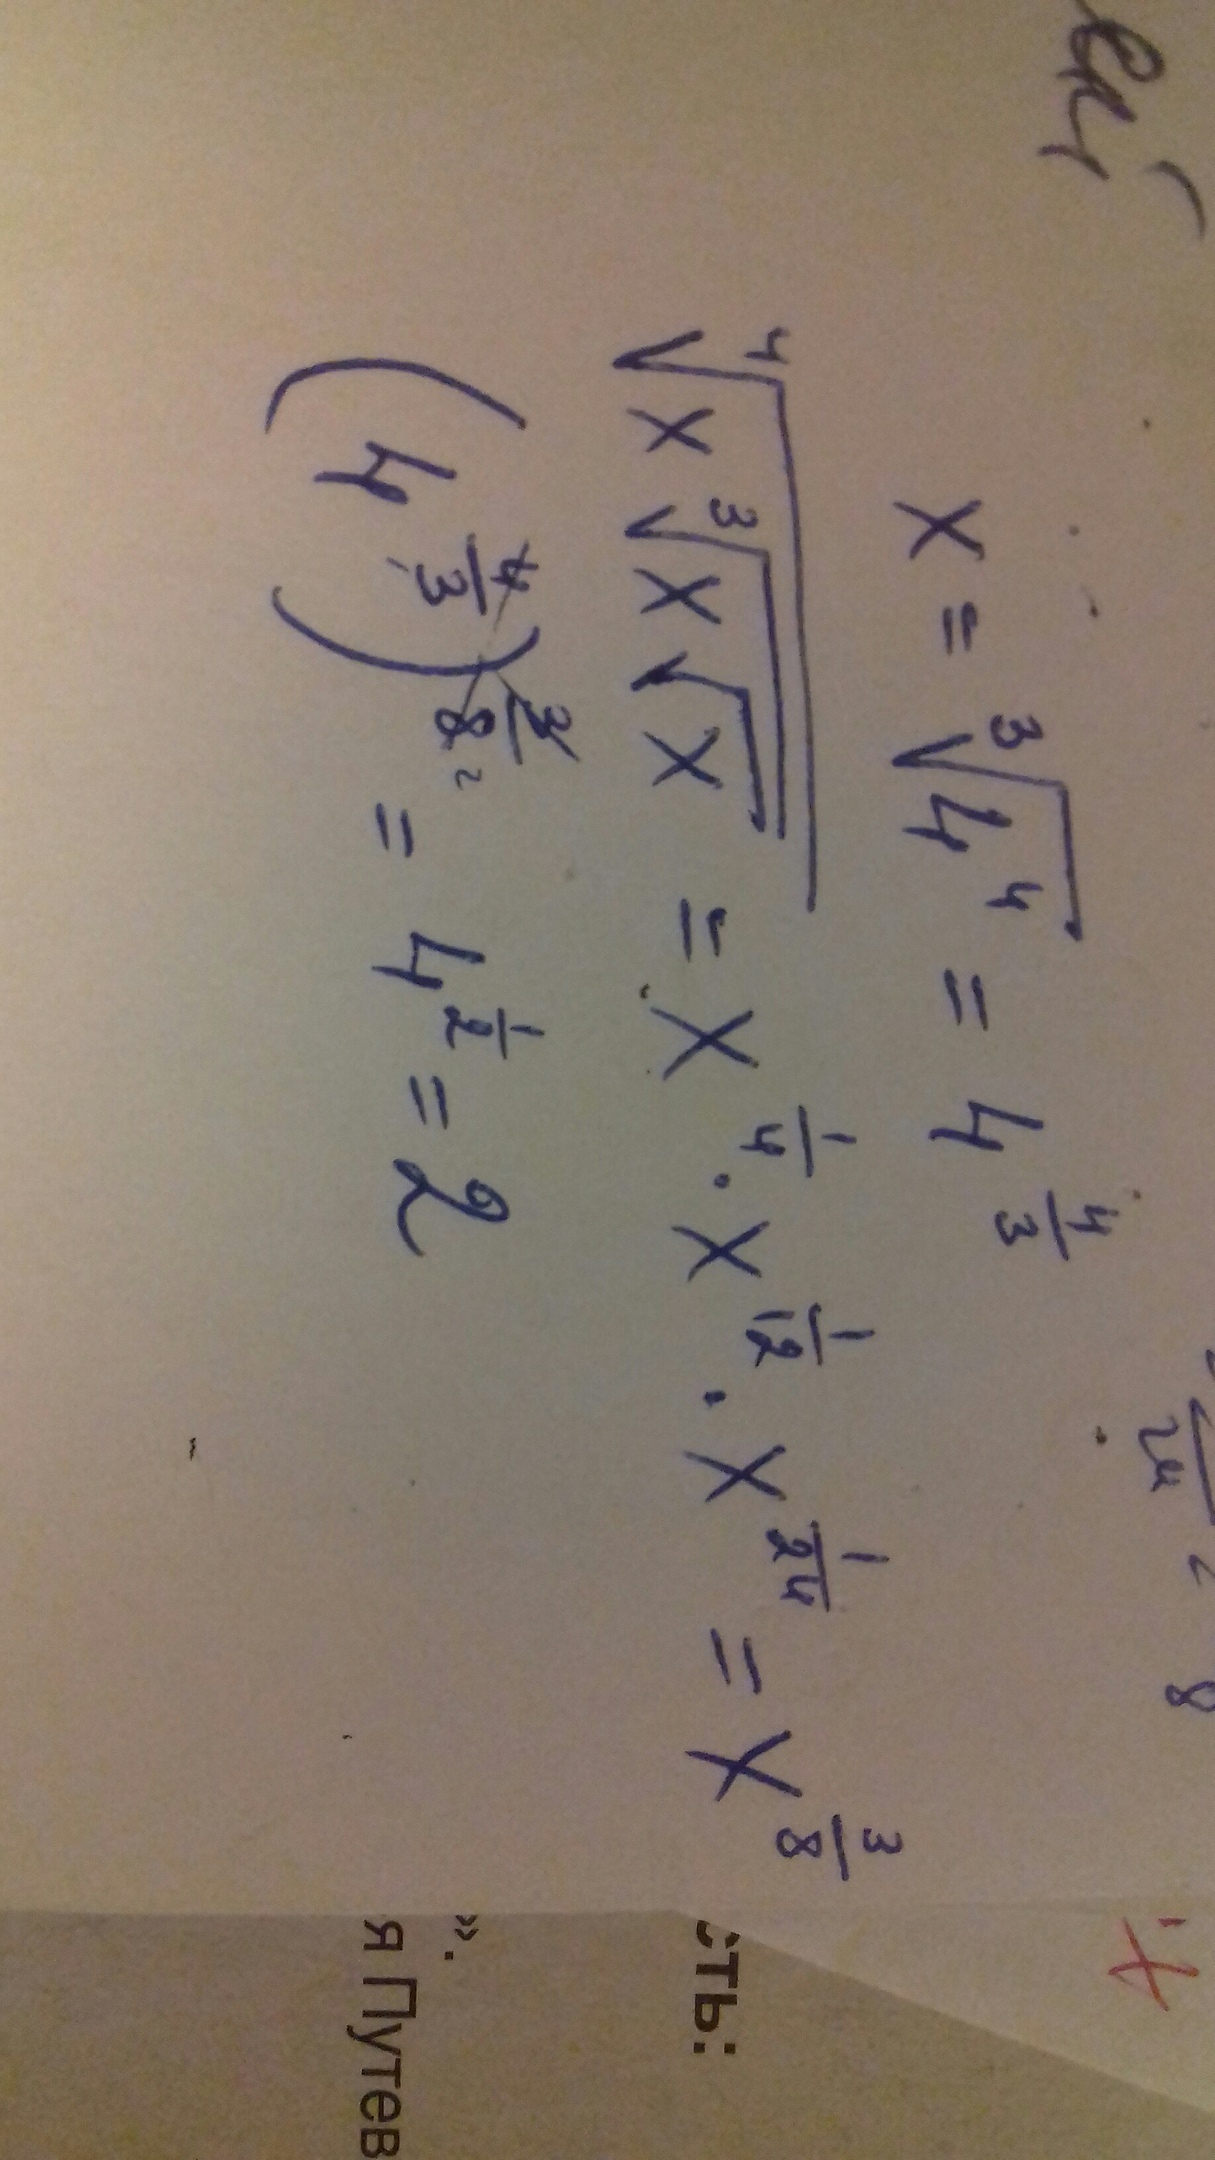 x = ∛(4⁴) = 4^(4/3)
⁴√(x ∛(x √x)) = x^(1/4) · x^(1/12) · x^(1/24) = x^(3/8)
(4^(4/3))^(3/8) 2 = 4^(1/2) = 2
сть:
».
я Путев